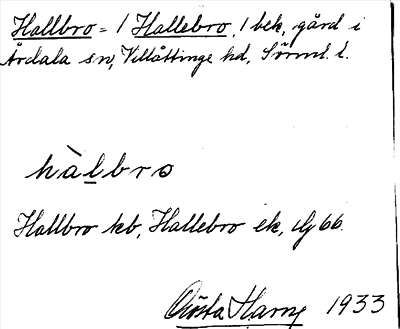 Hallbro = / Hallebro, / bek, gård i
Årdala sn, Villåttinge hd, Sörml. l.
hàlbro
Hallbro kb, Hallebro ek, 66.
Gösta Harne 1933